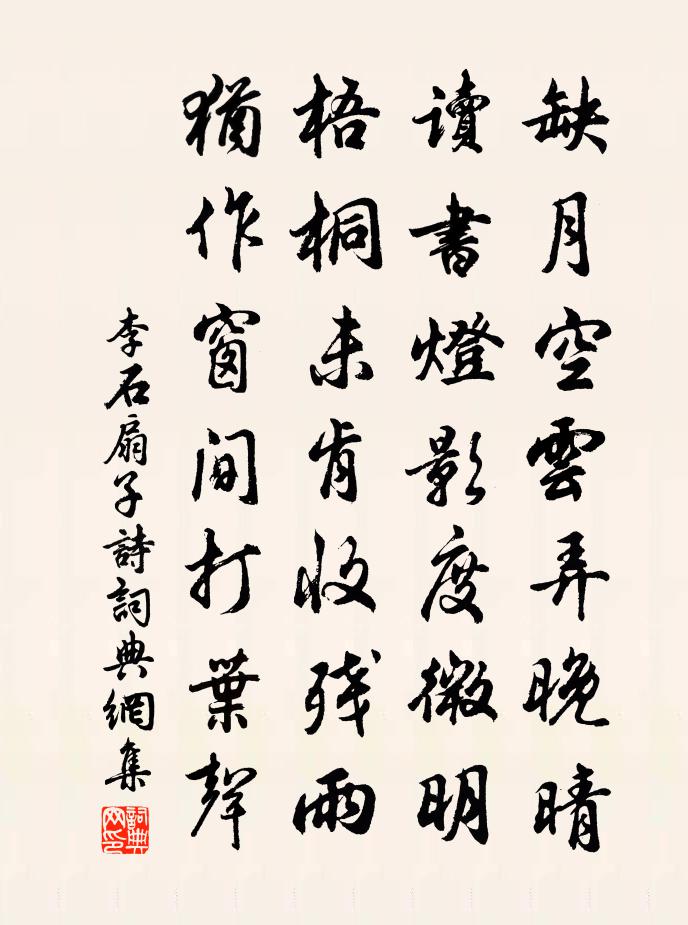 缺月空雲弄晚晴
讀書燈影度微明
梧桐未肯收残雨
猶作窗間打葉聲
李石扇子詩詞典網集
詞典網印